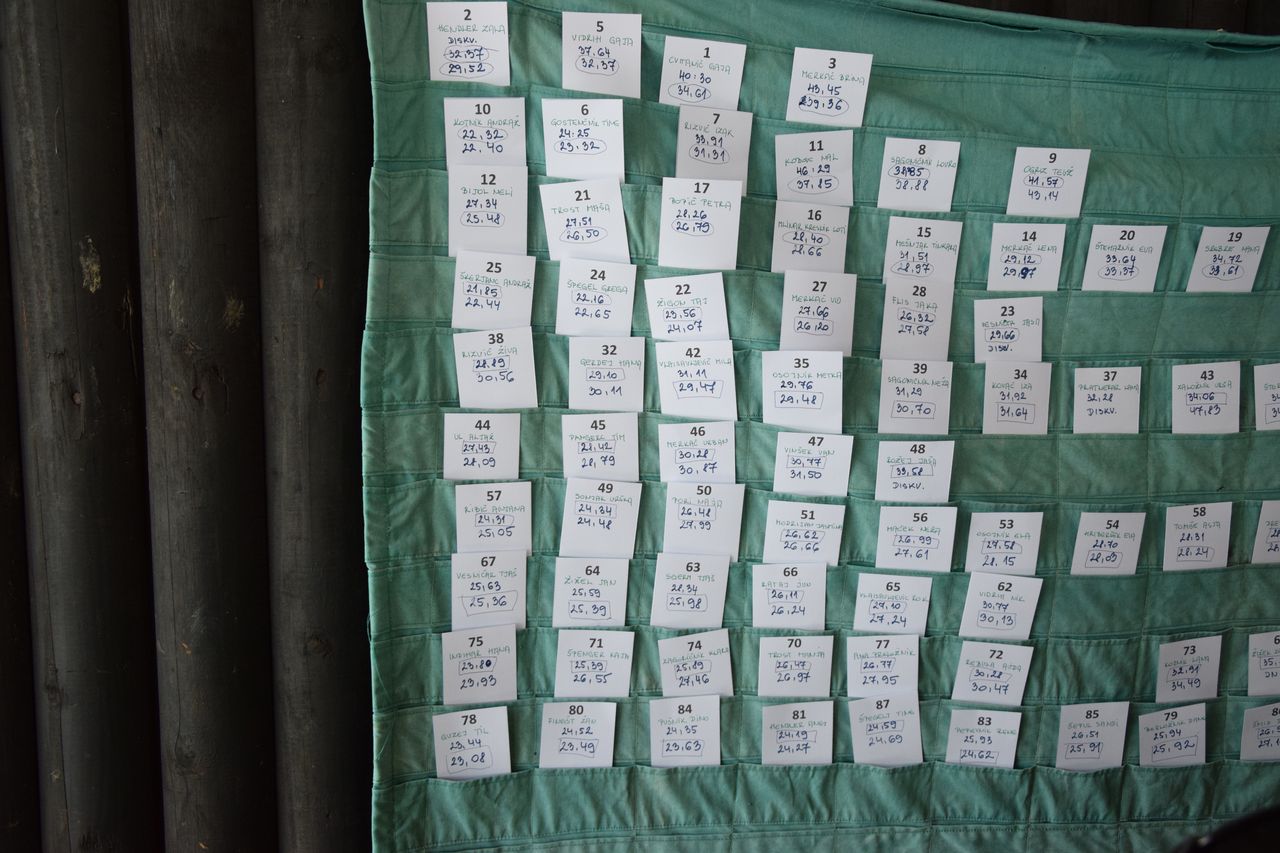 2
HENDLER ZALA
DISKV.
32,37
29,52
5
VIDRIH GAJA
37,64
32,37
1
CVITANIČ GAJA
40:30
34,61
3
MERKAČ BRINA
43,45
39,36
10
KOTNIK ANDRAŽ
22,32
22,40
6
GOSTENČNIK TIME
24:25
23,32
7
RIZVIČ IZAK
33,91
31,31
11
MAL
46:29
37,85
8
SAGOMIČNIK LOVRO
38,88
9
OGRIZ TEVŽ
41,57
43,14
12
BIJOL NELI
27,34
25,48
21
TROST MAŠA
27,51
26,50
17
PETRA
28,26
26,79
16
28,40
28,66
15
31,51
28,97
14
MERKAČ LENA
29,12
29,97
20
ŠTEHARNIK EVA
33,64
33,37
19
34,72
33,61
25
ŠKERJANC ANDRAŽ
21,85
22,44
24
ŠPEGEL GREGA
22,16
22,65
22
ŽIGON TAJ
23,56
24,07
27
MERKAČ VID
27,66
26,20
28
FLIS JAKA
26,32
27,58
23
29,66
DISKV.
38
RIZVIČ ŽIVA
28,89
30,56
32
GERDEJ HANA
29,10
30,11
42
VLAISAVLJEVIČ MILA
31,11
29,47
35
OSOJNIK METKA
29,76
29,48
39
SAGOMIČNIK NEŽA
31,29
30,70
34
KOVAČ IZA
31,92
31,64
37
PRATNEKAR LANA
32,28
DISKV.
43
ZALOŽNIK URŠA
34,06
47,83
44
27,43
28,09
45
TIM
28,42
28,79
46
MERKAČ URBAN
30:28
30,87
47
VINŠEK VAN
30,77
31,50
48
ROŽEJ JAŠA
33,58
DISKV.
57
24,31
25,05
49
SONJAK URŠKA
24,34
24,48
50
PORI MAJA
26,48
27,99
51
MODRIJAN JASMINA
26,62
26,66
56
MAČEK NEŽA
26,99
27,61
53
OSOJNIK ELA
27,58
28,15
54
HRIBERŠEK EVA
28,70
28,03
58
TOMŠE ASJA
28,31
28,24
67
VESNIČAR TJAŠ
25,63
25,36
64
ŽIŽEL JAN
25,59
25,39
63
TJAŠ
28,34
25,98
66
RATAJ JUN
26,11
26,24
65
VLAISAVLJEVIČ ROK
27,10
27,24
62
VIDRIH NIK
30,77
30,13
75
HANA
23,80
23,93
71
ŠPENGER KAJA
25,39
26,55
74
ZAGORIČNIK KLARA
25,89
27,46
70
TROST MANJA
26,47
26,97
77
26,77
27,95
72
30,28
30,47
73
LANA
32,91
34,49
78
GUZEJ TIL
23,44
23,08
80
ŽAN
24,52
23,49
84
PUŠNIK DINO
24,35
23,63
81
HENDLER ANEJ
24,19
24,27
87
ŠPEGELJ TIME
24,59
24,69
83
25,93
24,62
85
26,51
25,91
79
25,94
25,92